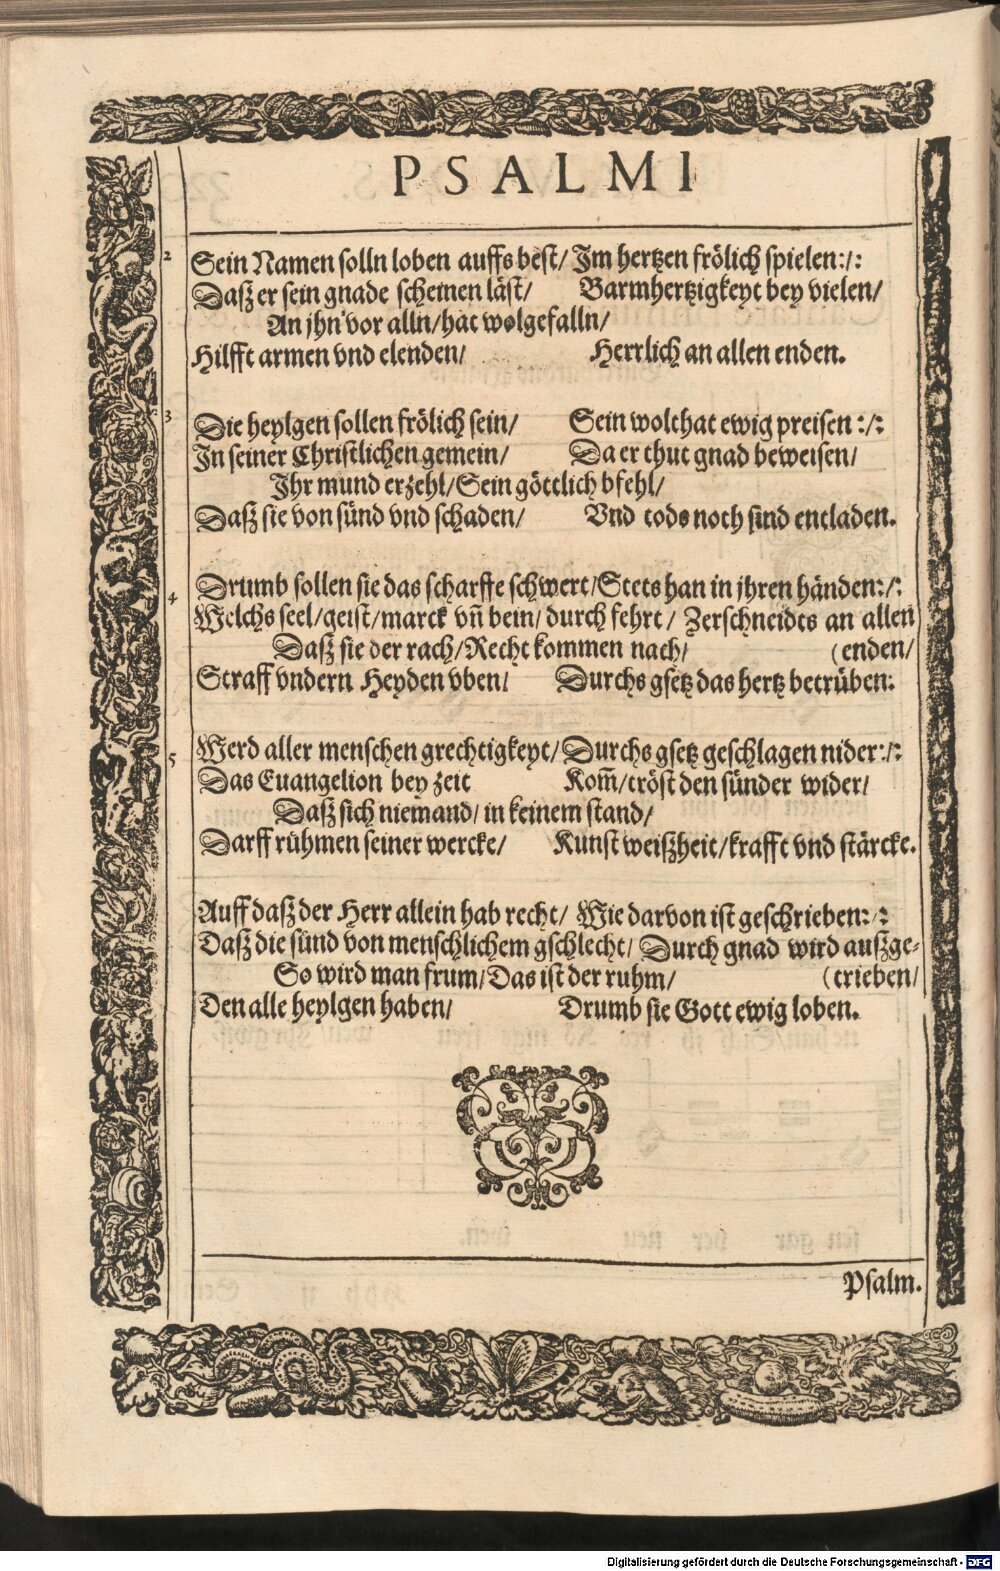 PSALMI
2 Sein Namen solln loben auffs best/ Im hertzen frölich spielen:/:
Daß er sein gnade scheinen läst/ Barmhertzigkeyt bey vielen/
An jhn vor alln/hat wolgefalln/
Hilfft armen vnd elenden/ Herrlich an allen enden.
3 Die heylgen sollen frölich sein/ Sein wolthat ewig preisen:/:
In seiner Christlichen gemein/ Da er thut gnad beweisen/
Ihr mund erzehl/Sein göttlich bfehl/
Daß sie von sünd vnd schaden/ Vnd tods noch sind entladen.
4 Drumb sollen sie das scharffe schwert/Stets han in jhren händen:/:
Welchs seel/geist/marck vñ bein/durch fehrt/ Zerschneidts an allen
Daß sie der rach/Recht kommen nach/ (enden/
Straff vndern Heyden vben/ Durchs gsetz das hertz betrüben.
5 Werd aller menschen grechtigkeyt/ Durchs gsetz geschlagen nider:/:
Das Euangelion bey zeit Kom̃/tröst den sünder wider/
Daß sich niemand/in keinem stand/
Darff rühmen seiner wercke/ Kunst weißheit/krafft vnd stärcke.
Auff daß der Herr allein hab recht/ Wie darvon ist geschrieben:/:
Daß die sünd von menschlichem gschlecht/ Durch gnad wird außge-
So wird man frum/Das ist der ruhm/ (trieben/
Den alle heylgen haben/ Drumb sie Gott ewig loben.
Psalm.
Digitalisierung gefördert durch die Deutsche Forschungsgemeinschaft - DFG